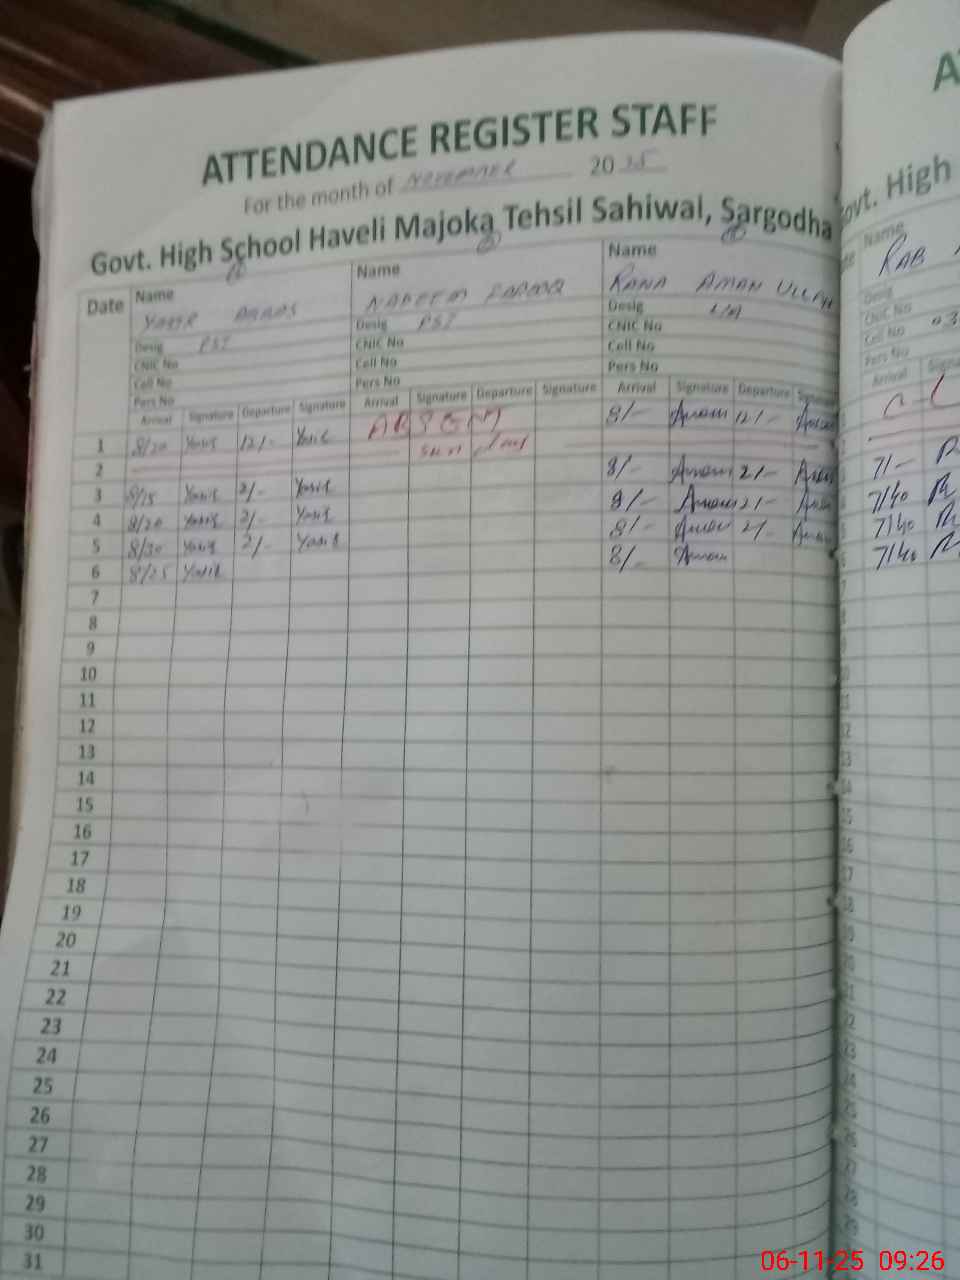 ATTENDANCE REGISTER STAFF
For the month of November 2025
Govt. High School Haveli Majoka Tehsil Sahiwal, Sargodha
Date Name Name Name
NADEEM FAROOQ RANA AMAN ULLAH
Desig PST Desig PST Desig
CNIC No CNIC No CNIC No
Cell No Cell No Cell No
Pers No Pers No Pers No
Arrival Signature Departure Signature Arrival Signature Departure Signature Arrival Signature Departure
1 8/20 Yasir 12/- Yasir ABSENT 8/- Aman 12/- Aman
2 Sun day
3 8/15 Yasir 2/- Yasir 8/- Aman 2/- Aman
4 8/20 Yasir 2/- Yasir 8/- Aman 2/- Aman
5 8/30 Yasir 2/- Yasir 8/- Aman 2/- Aman
6 8/25 Yasir 8/- Aman
7
8
9
10
11
12
13
14
15
16
17
18
19
20
21
22
23
24
25
26
27
28
29
30
31
Govt. High
Name
RAB
Desig
CNIC No
Cell No 03
Pers No
Arrival
7/-
7/40
7/40
7/40
06-11-25 09:26